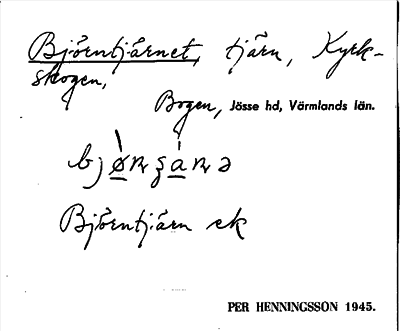 Björntjärnet, tjärn, Kyrk-
skogen,
Bogen, Jösse hd, Värmlands län.
Björntjärn ek
PER HENNINGSSON 1945.